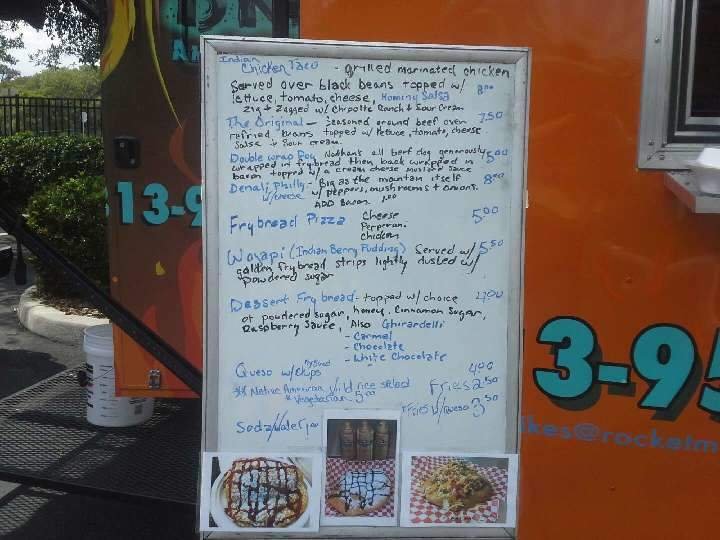 Indian
Chicken Taco - grilled marinated chicken
Served over black beans topped w/ 8.00
lettuce, tomato, cheese, Hominy Salsa
Zig + Zagged w/ Chipotle Ranch + Sour Cream
The Original - seasoned ground beef over 7.50
refried beans topped w/ lettuce, tomato, cheese
salsa + sour cream
Double wrap Dog Nathan's all beef dog generously 5.00
wrapped in frybread then back wrapped in
bacon topped w/ a cream cheese mustard sauce
Denali Philly - Big as the mountain itself 8.00
w/cheese w/ peppers, mushrooms + onions.
ADD Bacon 1.00
Frybread Pizza Cheese 5.00
Chicken
Wojapi (Indian Berry Pudding) Served w/ 5.50
golden frybread strips lightly dusted w/
powdered sugar
Dessert Frybread - topped w/ choice
of powdered sugar, honey, Cinnamon Sugar,
Raspberry Sauce, Also Ghirardelli
- Carmel
- Chocolate
- White Chocolate
Queso w/chips 4.00
Native American Wild rice salad Fries 2.50
Vegetarian 5.00 Fries w/queso 3.50
Soda/Water 1.00
13-9
3-95
ikes@rocketm